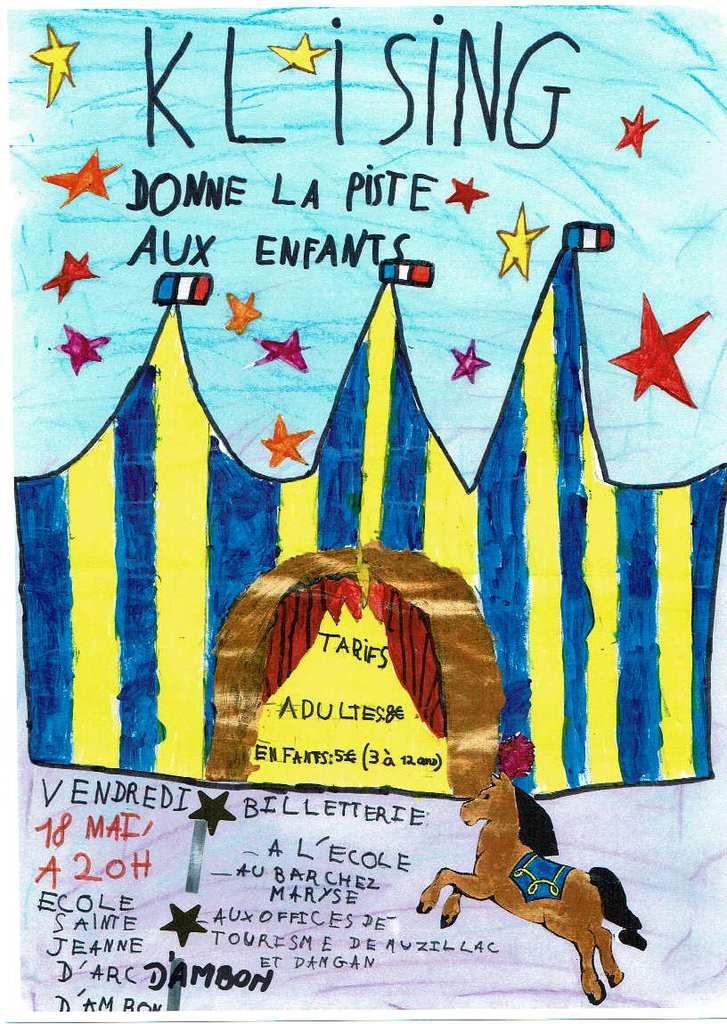 KLISING
DONNE LA PISTE
AUX ENFANTS
TARIFS
ADULTES:8€
ENFANTS:5€ (3 à 12 ans)
VENDREDI
18 MAI,
A 20H
ECOLE
SAINTE
JEANNE
D'ARC D'AMBON
D'AMBON
BILLETTERIE:
- A L'ECOLE
- AU BAR CHEZ
MARYSE
- AUX OFFICES DE
TOURISME DE MUZILLAC
ET DAMGAN